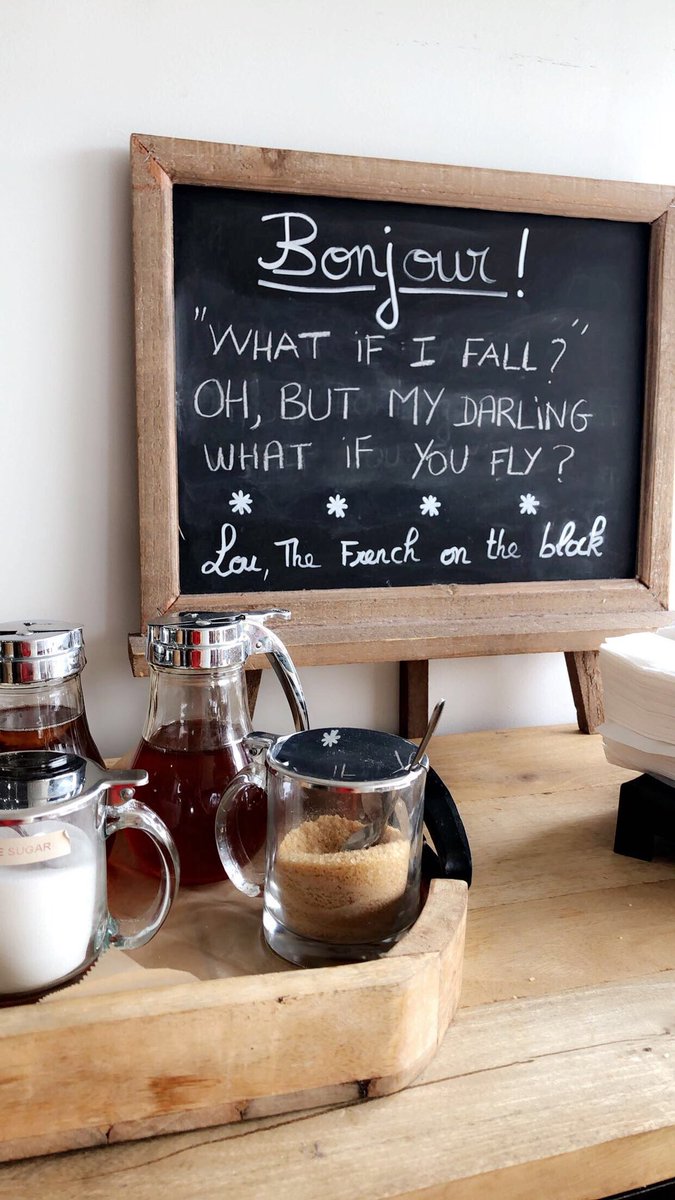 Bonjour!
"WHAT iF I FALL?"
OH, BUT MY DARLiNG
WHAT iF YOU FLY?
Lou, The French on the block
SUGAR